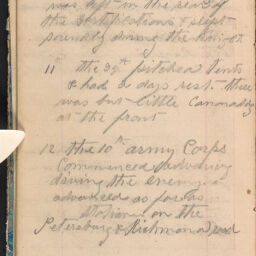 was left in the rear of
the fortifications & slept
soundly during the night
11 the 39th pitched tents
& had a days rest. there
was but little Canonading
at the front
12 the 10th army Corps
Commenced Advancing
driving the enemy
advanced as far as
Station on the
Petersburg & Richmond road